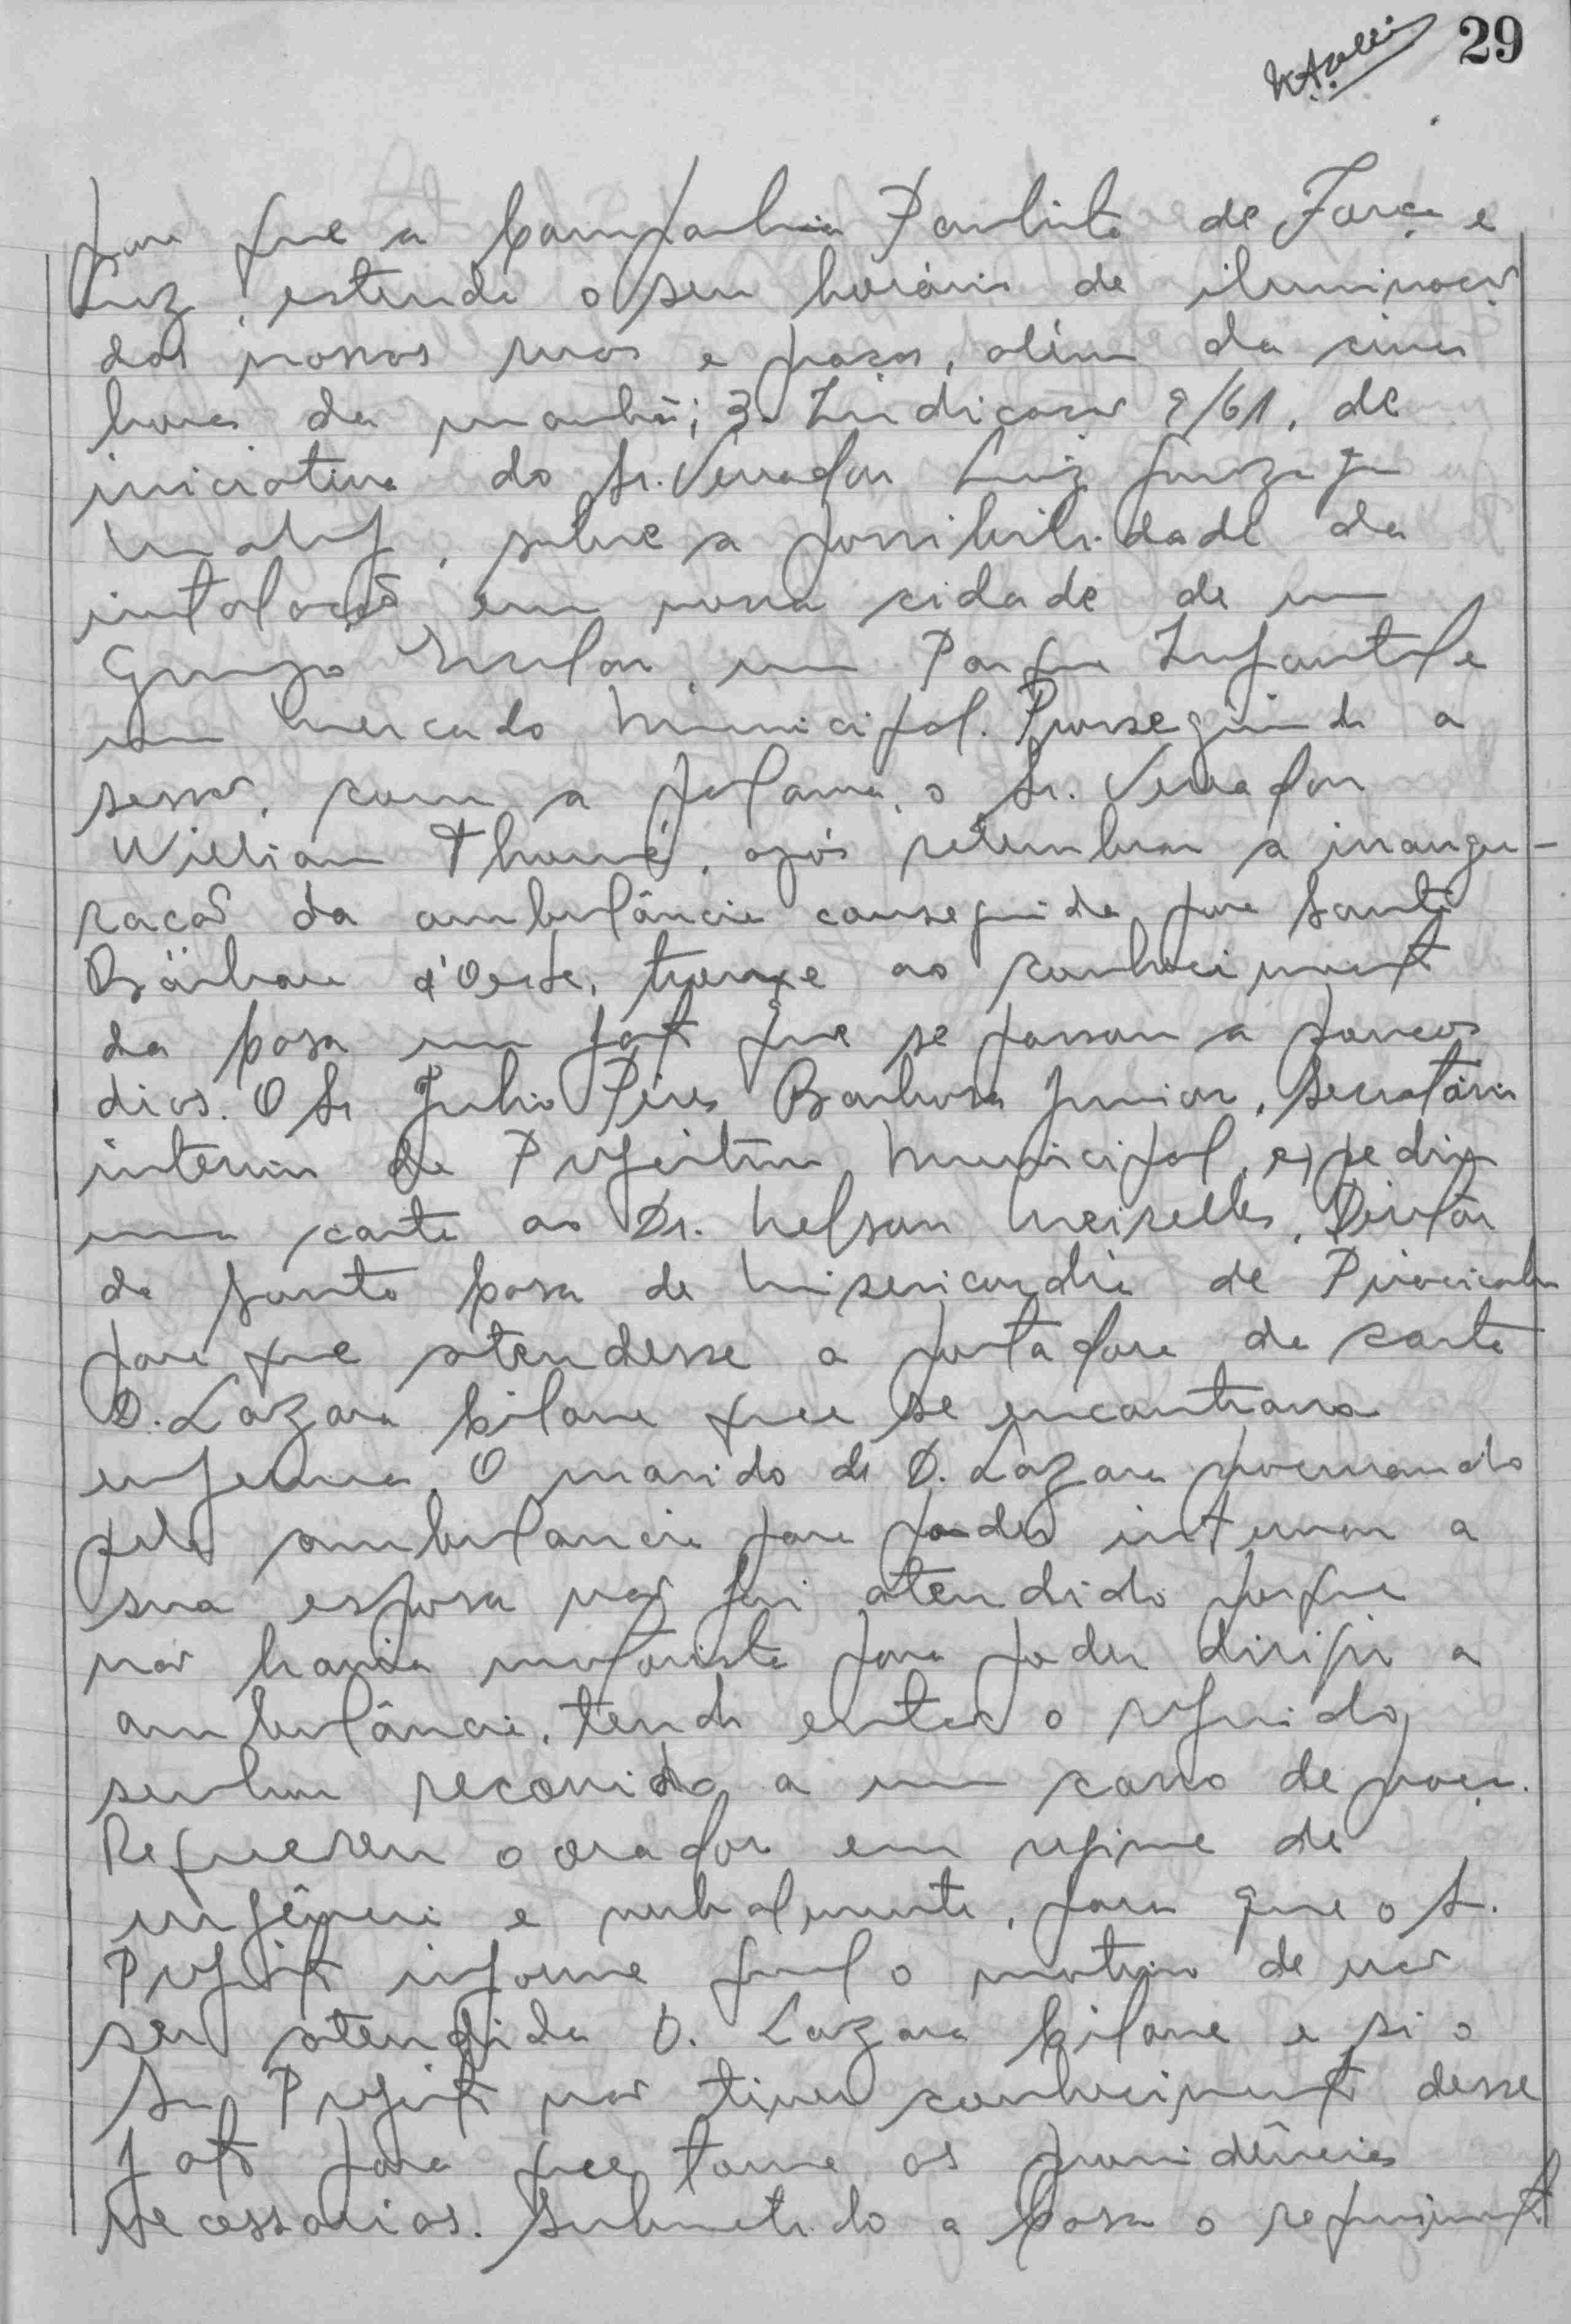 29
para que a Companhia Paulista de Força e
Luz, estenda o seu horário de iluminação
das nossas ruas e praças, além da cinco
horas da manhã; 3. Indicação 9/61, de
iniciativa do Sr. Vereador Luiz Gonzaga
, sobre a possibilidade da
intalação em nossa cidade de um
Grupo Escolar, um Parque Infantil e
um Mercado Municipal. Prosseguindo a
sessão, com a palavra, o Sr. Vereador
William Thomé, após relembrar a inaugu-
ração da ambulância conseguida para Santa
Bárbara d'Oeste, trouxe ao conhecimento
da Casa um fato que se passou a poucos
dias. O Sr Julio Pires Barbosa Junior, Secretário
interino da Prefeitura Municipal, expediu
uma carta ao Dr. Nelson Meirelles, Diretor
da Santa Casa de Misericordia de Piracicaba
para que atendesse a portadora da carta
D. Lazara Cilave que se encontrava
enferma. O marido de D. Lazara procurando
pela ambulancia para poder internar a
sua esposa não foi atendido porque
não havia motorista para poder dirigir a
ambulância, tendo então o referido
senhor recorrido a um carro de praça.
Requereu o orador em regime de
urgência e verbalmente, para que o Sr.
Prefeito informe qual o motivo de não
ser atendida D. Lazara Cilave e si o
Sr Prefeito não tiver conhecimento desse
fato para que tome as providências
necessarias. Submetido a Casa o requerimento